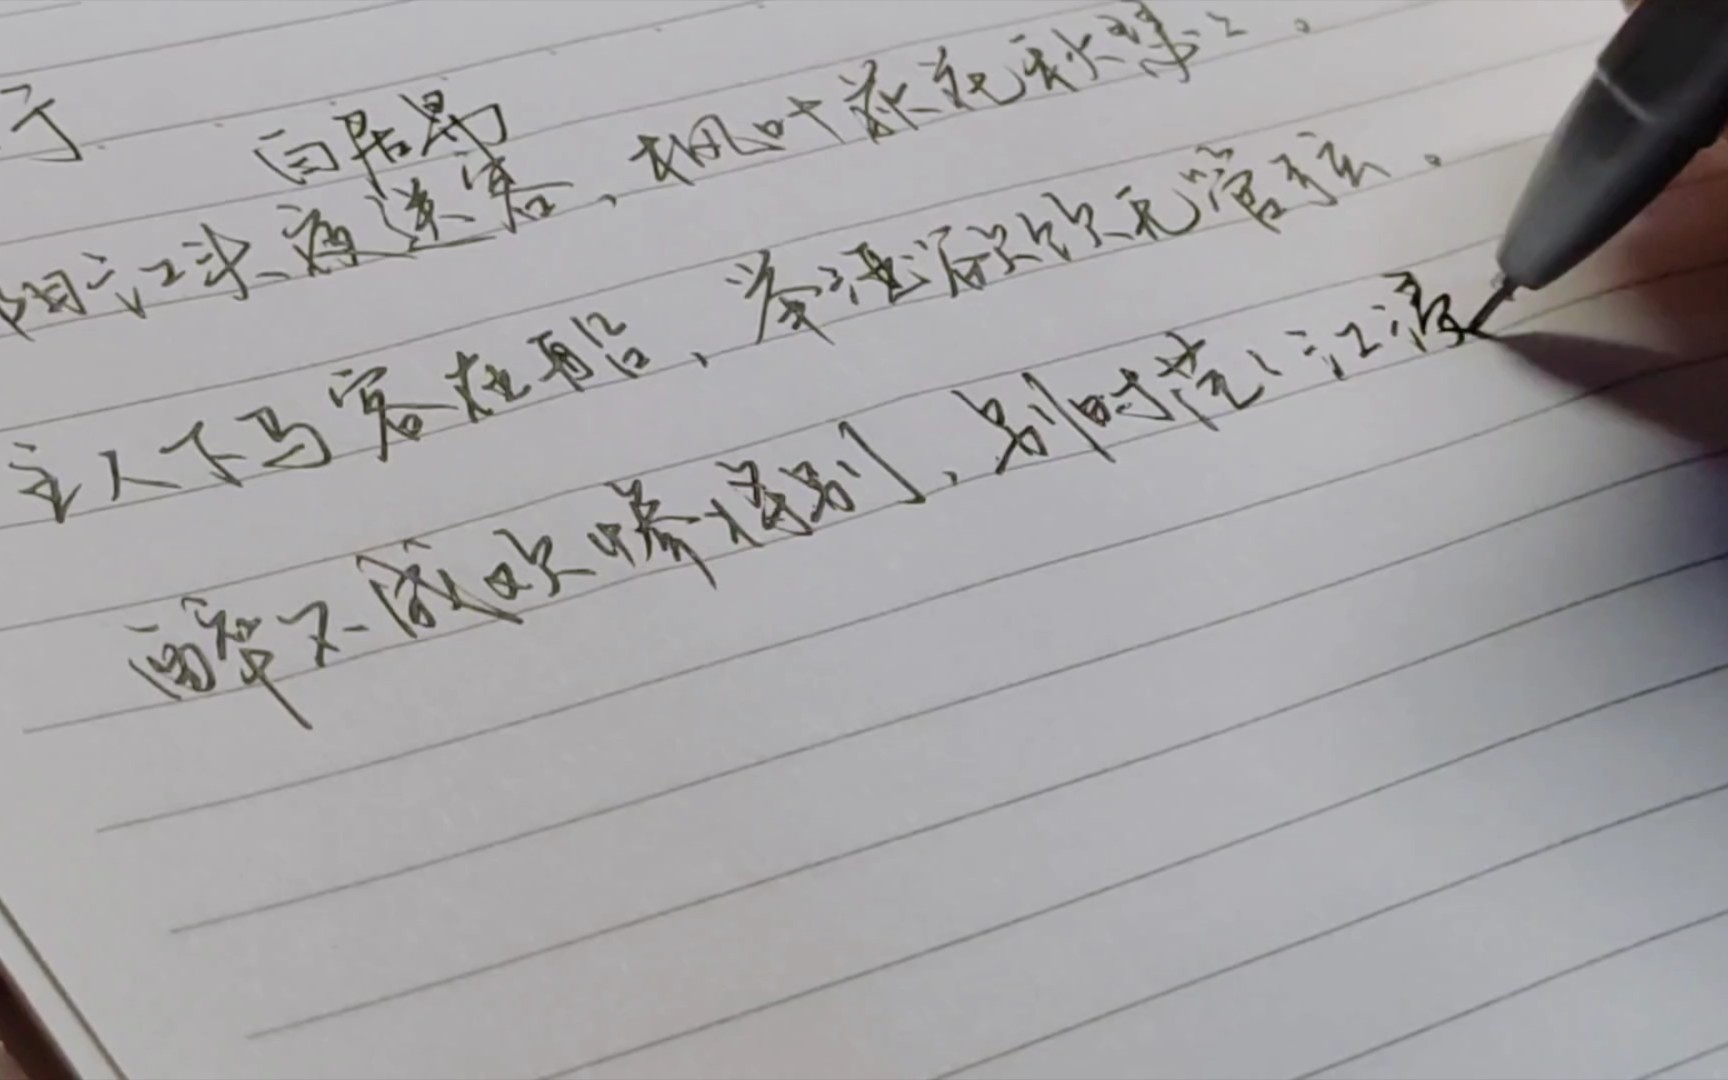 行 白居易
阳江头夜送客，枫叶荻花秋瑟瑟。
主人下马客在船，举酒欲饮无管弦。
醉不成欢惨将别，别时茫茫江浸